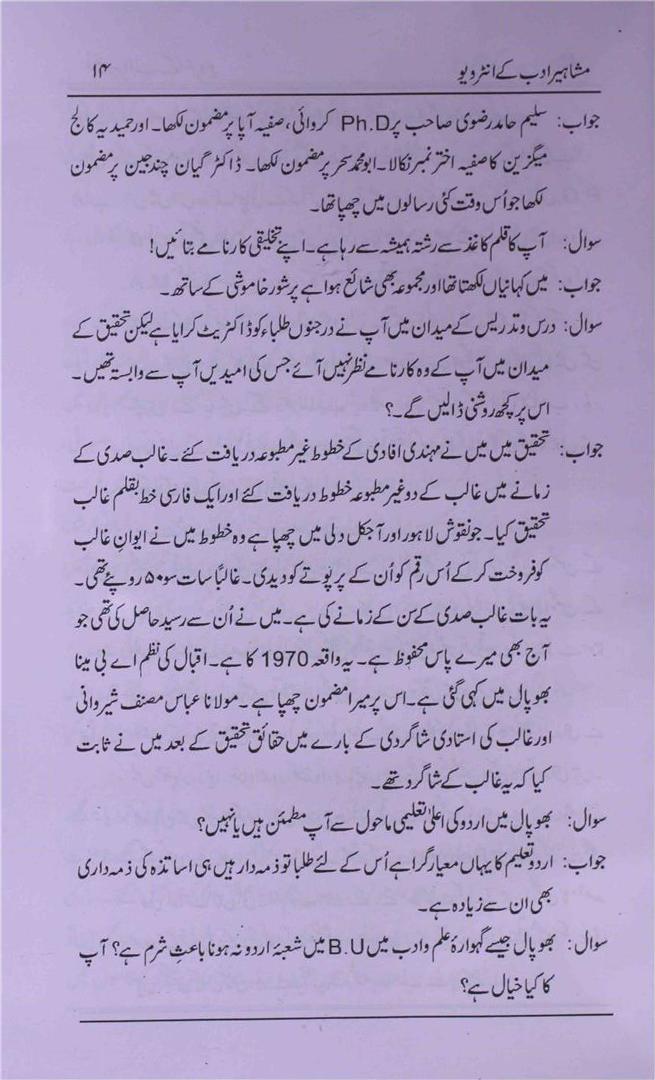 مشاہیر ادب کے انٹرویو ۱۴
جواب: سلیم حامد رضوی صاحب پر Ph.D کروائی، صفیہ آپا پر مضمون لکھا۔ اور حمیدیہ کالج
میگزین کا صفیہ اختر نمبر نکالا۔ ابو محمد سحر پر مضمون لکھا۔ ڈاکٹر گیان چند جین پر مضمون
لکھا جو اُس وقت کئی رسالوں میں چھپا تھا۔
سوال: آپ کا قلم کاغذ سے رشتہ ہمیشہ سے رہا ہے۔ اپنے تخلیقی کارنامے بتائیں!
جواب: میں کہانیاں لکھتا تھا اور مجموعہ بھی شائع ہوا ہے پر شور خاموشی کے ساتھ۔
سوال: درس و تدریس کے میدان میں آپ نے درجنوں طلباء کو ڈاکٹریٹ کرایا ہے لیکن تحقیق کے
میدان میں آپ کے وہ کارنامے نظر نہیں آئے جس کی امیدیں آپ سے وابستہ تھیں۔
اس پر کچھ روشنی ڈالیں گے۔؟
جواب: تحقیق میں میں نے مہندی افادی کے خطوط غیر مطبوعہ دریافت کئے۔ غالب صدی کے
زمانے میں غالب کے دو غیر مطبوعہ خطوط دریافت کئے اور ایک فارسی خط بقلم غالب
تحقیق کیا۔ جو نقوش لاہور اور آجکل دلی میں چھپا ہے وہ خطوط میں نے ایوانِ غالب
کو فروخت کر کے اُس رقم کو اُن کے پر پوتے کو دیدی۔ غالباً سات سو ۵۰ روپئے تھی۔
یہ بات غالب صدی کے سن کے زمانے کی ہے۔ میں نے اُن سے رسید حاصل کی تھی جو
آج بھی میرے پاس محفوظ ہے۔ یہ واقعہ 1970 کا ہے۔ اقبال کی نظم اے بی مینا
بھوپال میں کہی گئی ہے۔ اس پر میرا مضمون چھپا ہے۔ مولانا عباس مصنف شیروانی
اور غالب کی استادی شاگردی کے بارے میں حقائق تحقیق کے بعد میں نے ثابت
کیا کہ یہ غالب کے شاگرد تھے۔
سوال: بھوپال میں اردو کی اعلیٰ تعلیمی ماحول سے آپ مطمئن ہیں یا نہیں؟
جواب: اردو تعلیم کا یہاں معیار گرا ہے اُس کے لئے طلبا تو ذمہ دار ہیں ہی اساتذہ کی ذمہ داری
بھی ان سے زیادہ ہے۔
سوال: بھوپال جیسے گہوارۂ علم و ادب میں B.U میں شعبۂ اردو نہ ہونا باعث شرم ہے؟ آپ
کا کیا خیال ہے؟